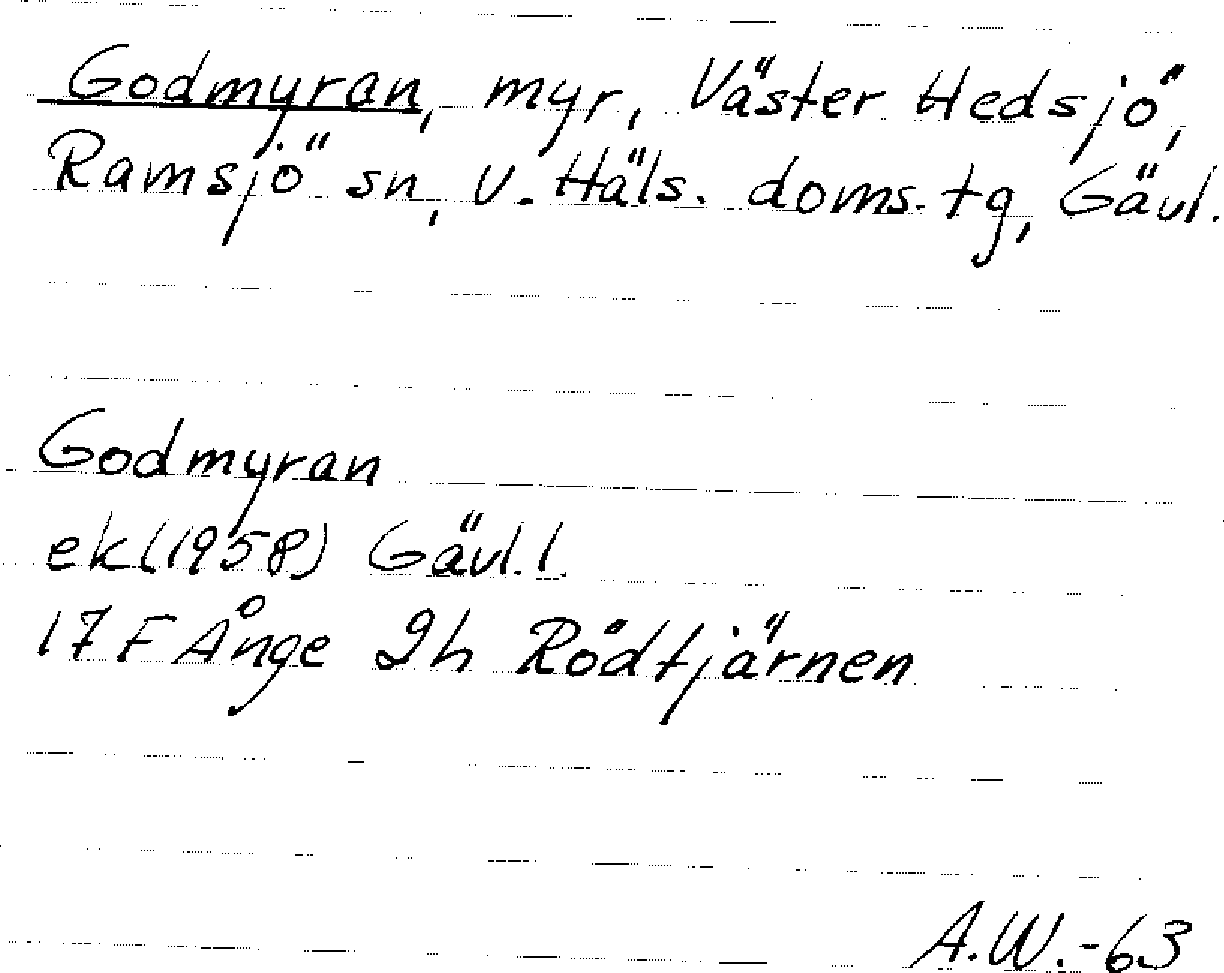 Godmyran, myr, Väster Hedsjö,
Ramsjö sn, V. Häls. doms. tg, Gävl.
Godmyran
ek (1958) Gävl. l.
17 F Ånge 2h Rödtjärnen
A.W.-63